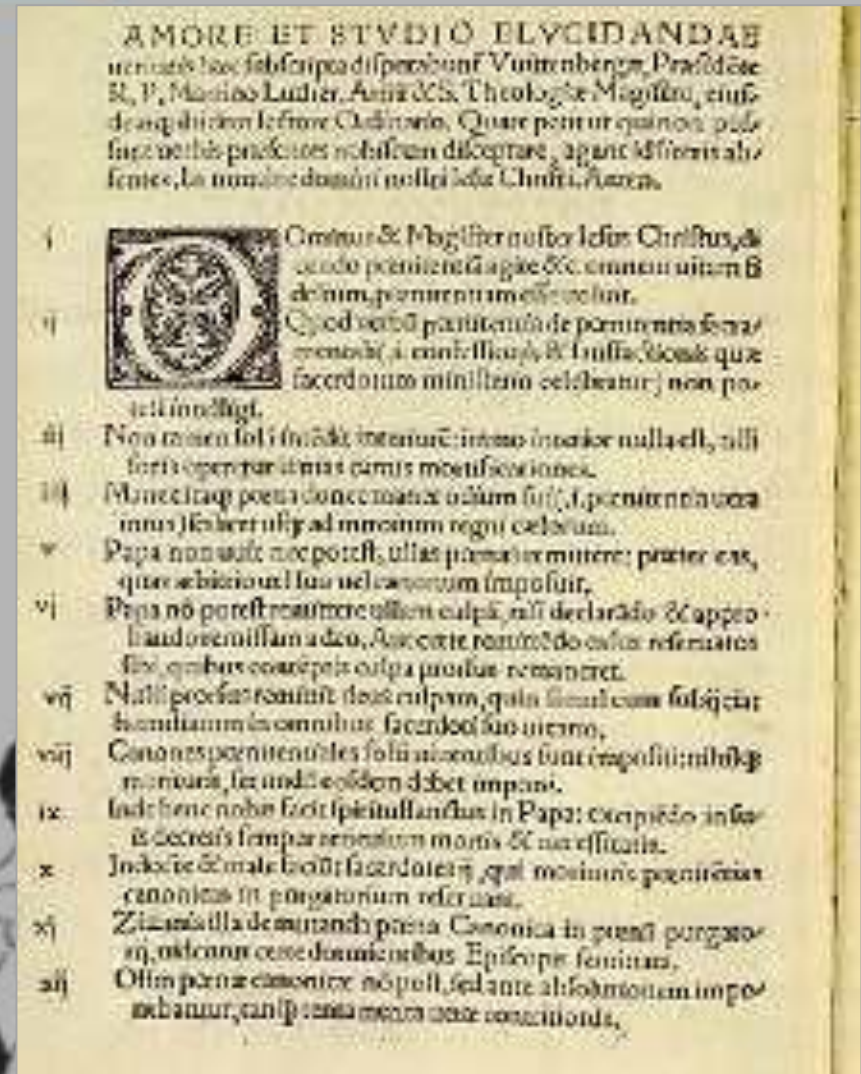 AMORE ET STVDIO ELVCIDANDAE
ueritatis hæc subscripta disputabunť Vuittenbergæ, Præsidēte
R. P. Martino Luther, Artiū & S. Theologiæ Magistro, eius-
demq; ibidem lectore Ordinario. Quare petit ut qui non pos-
sunt uerbis præsentes nobiscum disceptare, agant id literis ab-
sentes. In nomine domini nostri Iesu Christi. Amen.
i
Ominus & Magister noster Iesus Christus, di
cendo pœnitentiā agite &c. omnem uitam fi
delium, pœnitentiam esse uoluit.
ij
Quod uerbū pœnitentia de pœnitentia sacra-
mentali( .i. confessionis & satisfactionis quæ
sacerdotum ministerio celebratur) non po-
test intelligi.
iij Non tamen solā intēdit interiorē: immo interior nulla est, nisi
foris operetur uarias carnis mortificationes.
iiij Manet itaq; pœna donec manet odium sui( .i. pœnitentia uera
intus) scilicet usq; ad introitum regni cælorum.
v Papa non uult nec potest, ullas pœnas remittere: præter eas,
quas arbitrio uel suo uel canonum imposuit.
vj Papa nō potest remittere ullam culpā, nisi declarādo & appro-
bando remissam a deo. Aut certe remittēdo casus reseruatos
sibi, quibus contēptis culpa prorsus remaneret.
vij Nulli prorsus remittit deus culpam, quin simul eum subijciat
humiliatum in omnibus sacerdoti suo uicario.
viij Canones pœnitentiales solū uiuentibus sunt impositi: nihilq;
morituris, secundū eosdem debet imponi.
ix Inde bene nobis facit spiritussanctus in Papa: excipiēdo in su-
is decretis semper articulum mortis & necessitatis.
x Indocte & male faciūt sacerdotes ij, qui morituris pœnitētias
canonicas in purgatorium reseruant.
xj Zizania illa de mutanda pœna Canonica in pœnā purgato-
rij, uidentur certe dormientibus Episcopis seminata.
xij Olim pœnæ canonicæ nō post, sed ante absolutionem impo-
nebantur, tanq; tentamenta ueræ contritionis.